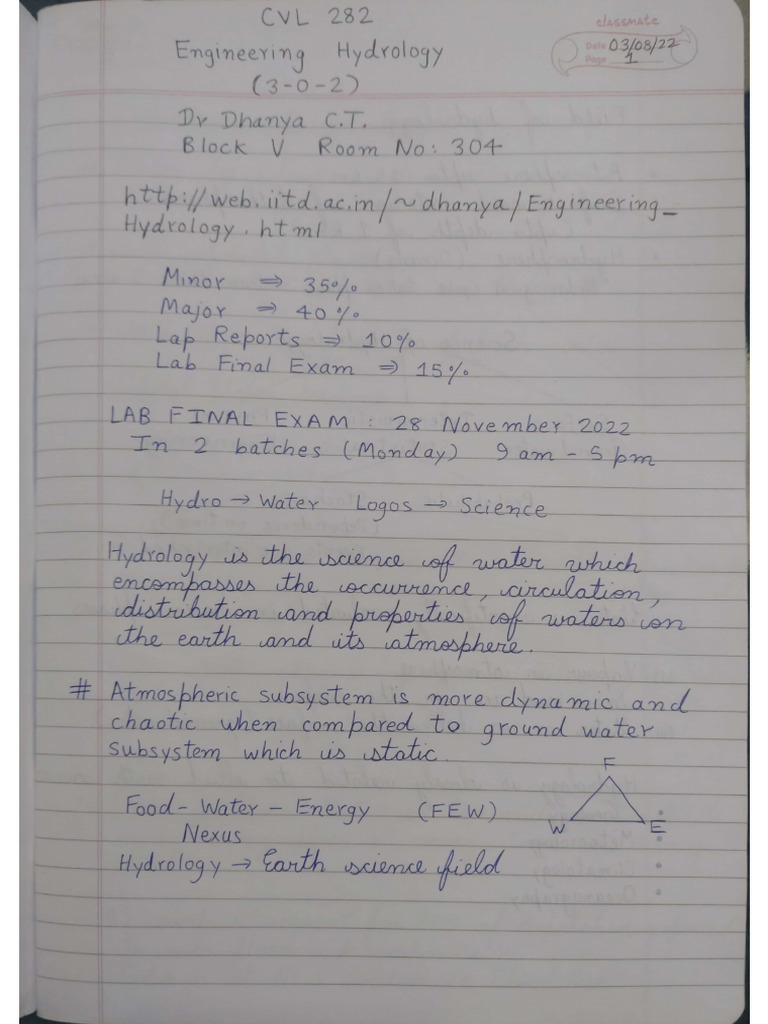 CVL 282
classmate
Engineering Hydrology
Date 03/08/22
Page 1
(3-0-2)
Dr Dhanya C.T.
Block V Room No: 304
http://web.iitd.ac.in/~dhanya/Engineering_
Hydrology.html
Minor ⇒ 35%
Major ⇒ 40%
Lab Reports ⇒ 10%
Lab Final Exam ⇒ 15%
LAB FINAL EXAM : 28 November 2022
In 2 batches (Monday) 9 am - 5 pm
Hydro → Water Logos → Science
Hydrology is the science of water which
encompasses the occurrence, circulation,
distribution and properties of waters on
the earth and its atmosphere.
# Atmospheric subsystem is more dynamic and
chaotic when compared to ground water
subsystem which is static.
F
Food - Water - Energy (FEW)
W E
Nexus
Hydrology → Earth science field